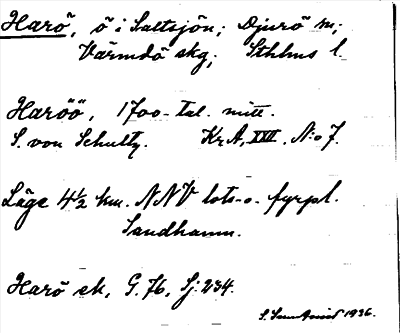 Harö, ö i Saltsjön; Djurö sn;
Värmdö skg; Sthlms l.
Haröö, 1700-tal. mitt.
S. von Schultz. KrA, XXII, N:o 7.
Läge 4½ km. NNV lots- o. fyrpl.
Sandhamn.
Harö ek, G. 76, Sj: 234.
S. 1936.